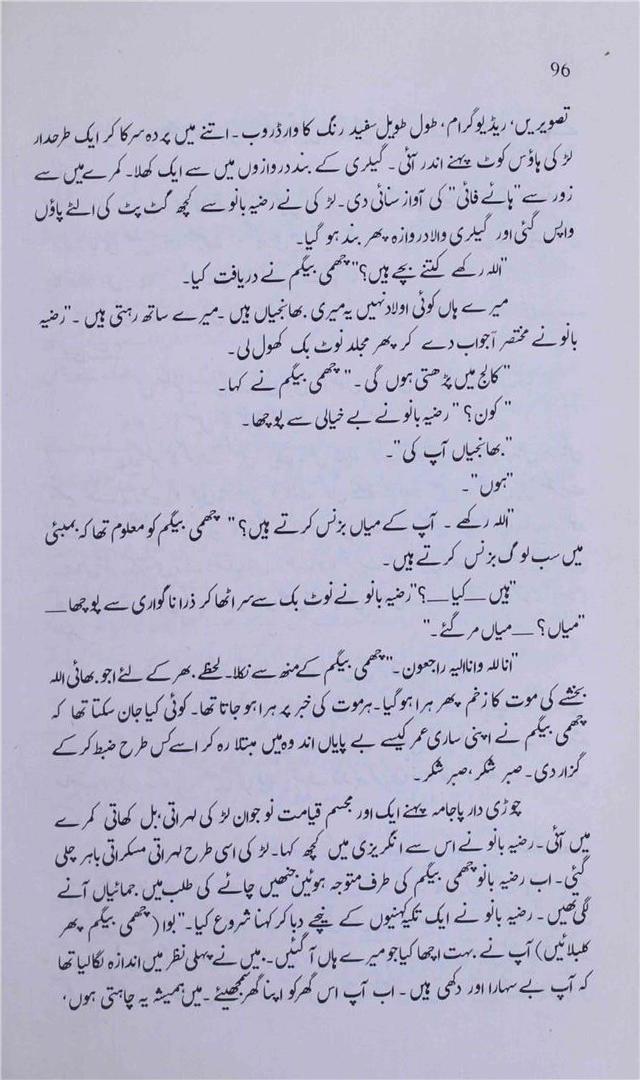 96
تصویریں، ریڈیوگرام، طول طویل سفید رنگ کا وارڈروب۔ اتنے میں پردہ سرکا کر ایک طرحدار
لڑکی ہاؤس کوٹ پہنے اندر آئی۔ گیلری کے بند دروازوں میں سے ایک کھلا۔ کمرے میں سے
زور سے "ہائے فائی" کی آواز سنائی دی۔ لڑکی نے رضیہ بانو سے کچھ گٹ پٹ کی الٹے پاؤں
واپس گئی اور گیلری والا دروازہ پھر بند ہو گیا۔
"اللہ رکھے کتنے بچے ہیں؟" چھمی بیگم نے دریافت کیا۔
میرے ہاں کوئی اولاد نہیں یہ میری بھانجیاں ہیں۔ میرے ساتھ رہتی ہیں۔" رضیہ
بانو نے مختصر آجواب دے کر پھر مجلد نوٹ بک کھول لی۔
"کالج میں پڑھتی ہوں گی۔" چھمی بیگم نے کہا۔
"کون؟" رضیہ بانو نے بے خیالی سے پوچھا۔
"بھانجیاں آپ کی"۔
"ہوں"۔
"اللہ رکھے۔ آپ کے میاں بزنس کرتے ہیں؟" چھمی بیگم کو معلوم تھا کہ بمبئی
میں سب لوگ بزنس کرتے ہیں۔
"ہیں __ کیا __؟" رضیہ بانو نے نوٹ بک سے سر اٹھا کر ذرا ناگواری سے پوچھا __
"میاں؟ __ میاں مر گئے۔"
"انا للہ وانا الیہ راجعون۔" چھمی بیگم کے منھ سے نکلا۔ لحظے بھر کے لئے اجو بھائی اللہ
بخشے کی موت کا زخم پھر ہرا ہو گیا۔ ہر موت کی خبر پر ہرا ہو جاتا تھا۔ کوئی کیا جان سکتا تھا کہ
چھمی بیگم نے اپنی ساری عمر کیسے بے پایاں اندوہ میں مبتلا رہ کر اسے کس طرح ضبط کر کے
گزار دی۔ صبر شکر، صبر شکر۔
چوڑی دار پاجامہ پہنے ایک اور مجسم قیامت نوجوان لڑکی لہراتی، بل کھاتی کمرے
میں آئی۔ رضیہ بانو نے اس سے انگریزی میں کچھ کہا۔ لڑکی اسی طرح لہراتی مسکراتی باہر چلی
گئی۔ اب رضیہ بانو چھمی بیگم کی طرف متوجہ ہوئیں جنھیں چائے کی طلب میں جمائیاں آنے
لگی تھیں۔ رضیہ بانو نے ایک تکیہ کہنیوں کے نیچے دبا کر کہنا شروع کیا۔ "بوا (چھمی بیگم پھر
کلبلائیں) آپ نے بہت اچھا کیا جو میرے ہاں آ گئیں۔ میں نے پہلی نظر میں اندازہ لگا لیا تھا
کہ آپ بے سہارا اور دکھی ہیں۔ اب آپ اس گھر کو اپنا گھر سمجھئے۔ میں ہمیشہ یہ چاہتی ہوں،